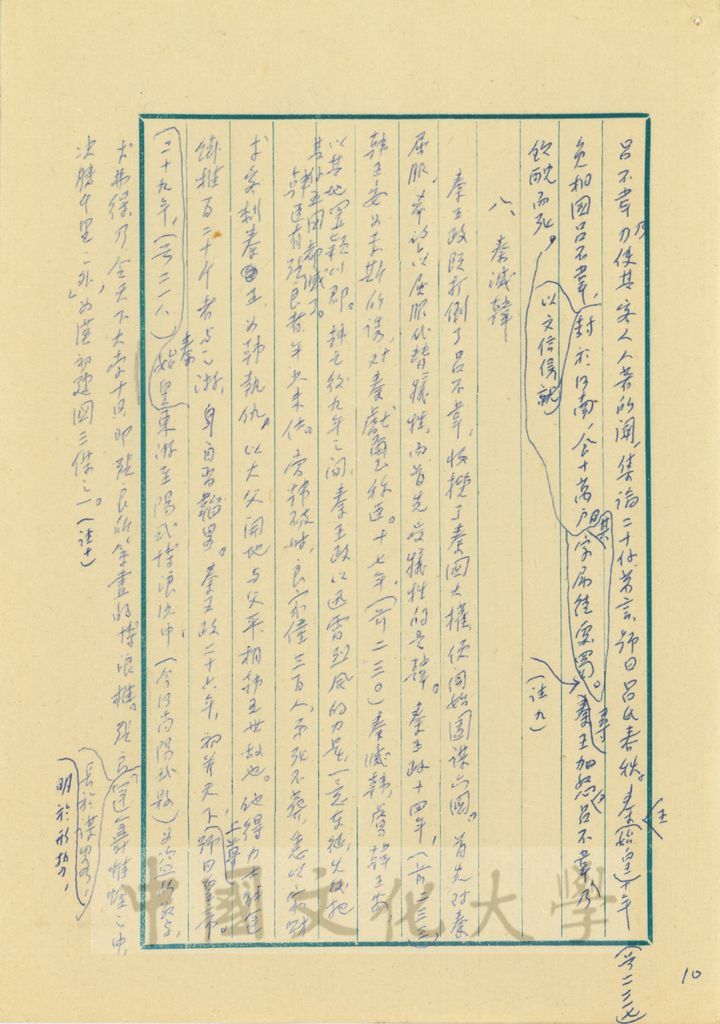 呂不韋乃使其客人人著所聞,集論二十餘萬言,號曰呂氏春秋。秦王(始皇)十年(前二三七)
免相國呂不韋,封於河南,食十萬戶。秦王加怒呂不韋,乃
飲酖而死。(註九)
以文信侯就
八、秦滅韓
秦王政既打倒了呂不韋,總攬了秦國大權,便開始圖謀六國。首先對秦
屈服,希望以屈服代替犧牲,而首先受犧牲的是韓。秦王政十四年,(前二三三)
韓王安以李斯的誘,對秦獻璽稱臣。十七年,(前二三〇)秦滅韓,虜韓王安,
以其地置潁川郡。韓亡後九年之間,秦王政以迅雷烈風的力量,一意東征,先後把
其餘五國都滅了。
韓遺有張良者,年少未仕。當韓破時,良家僮三百人,弟死不葬,悉以家財
求客刺秦王,為韓報仇,以大父開地與父平,相韓五世故也。他得力士能運
鐵椎百二十斤者與之游,秦王政二十六年,初并天下,號曰皇帝。
二十九年,(前二一八)始皇東游至陽武博浪沙中,(今河南陽武縣)為盜所驚,
求弗得,乃令天下大索十日,即張良所策畫的博浪椎。張良運籌帷幄之中,
決勝千里之外,為漢初建國三傑之一。(註十)
長於謀略,
明於形勢,
10
中國文化大學